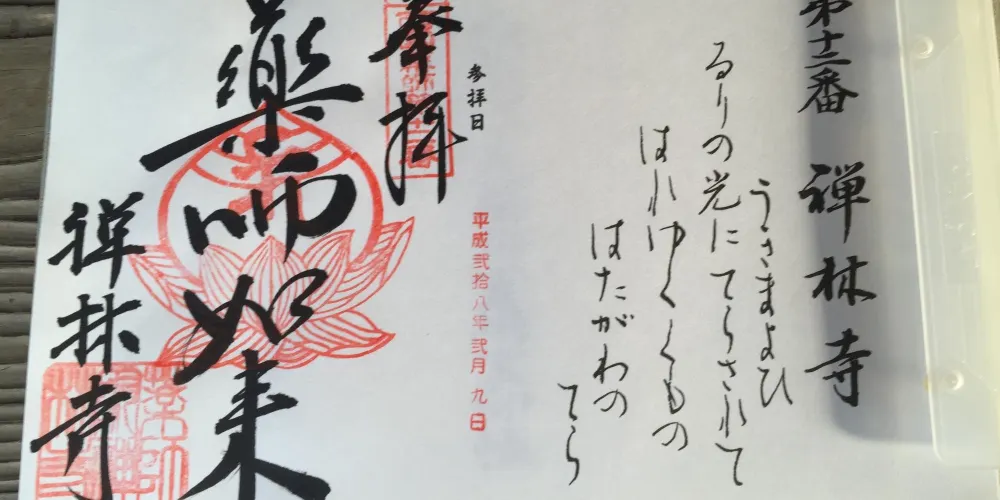 第十二番 禅林寺
うきまよひ
るりの光にてらされて
はれゆくくもの
はたがわの
てら
参拝日
平成弐拾八年弐月九日
奉拝
薬師如来
禅林寺